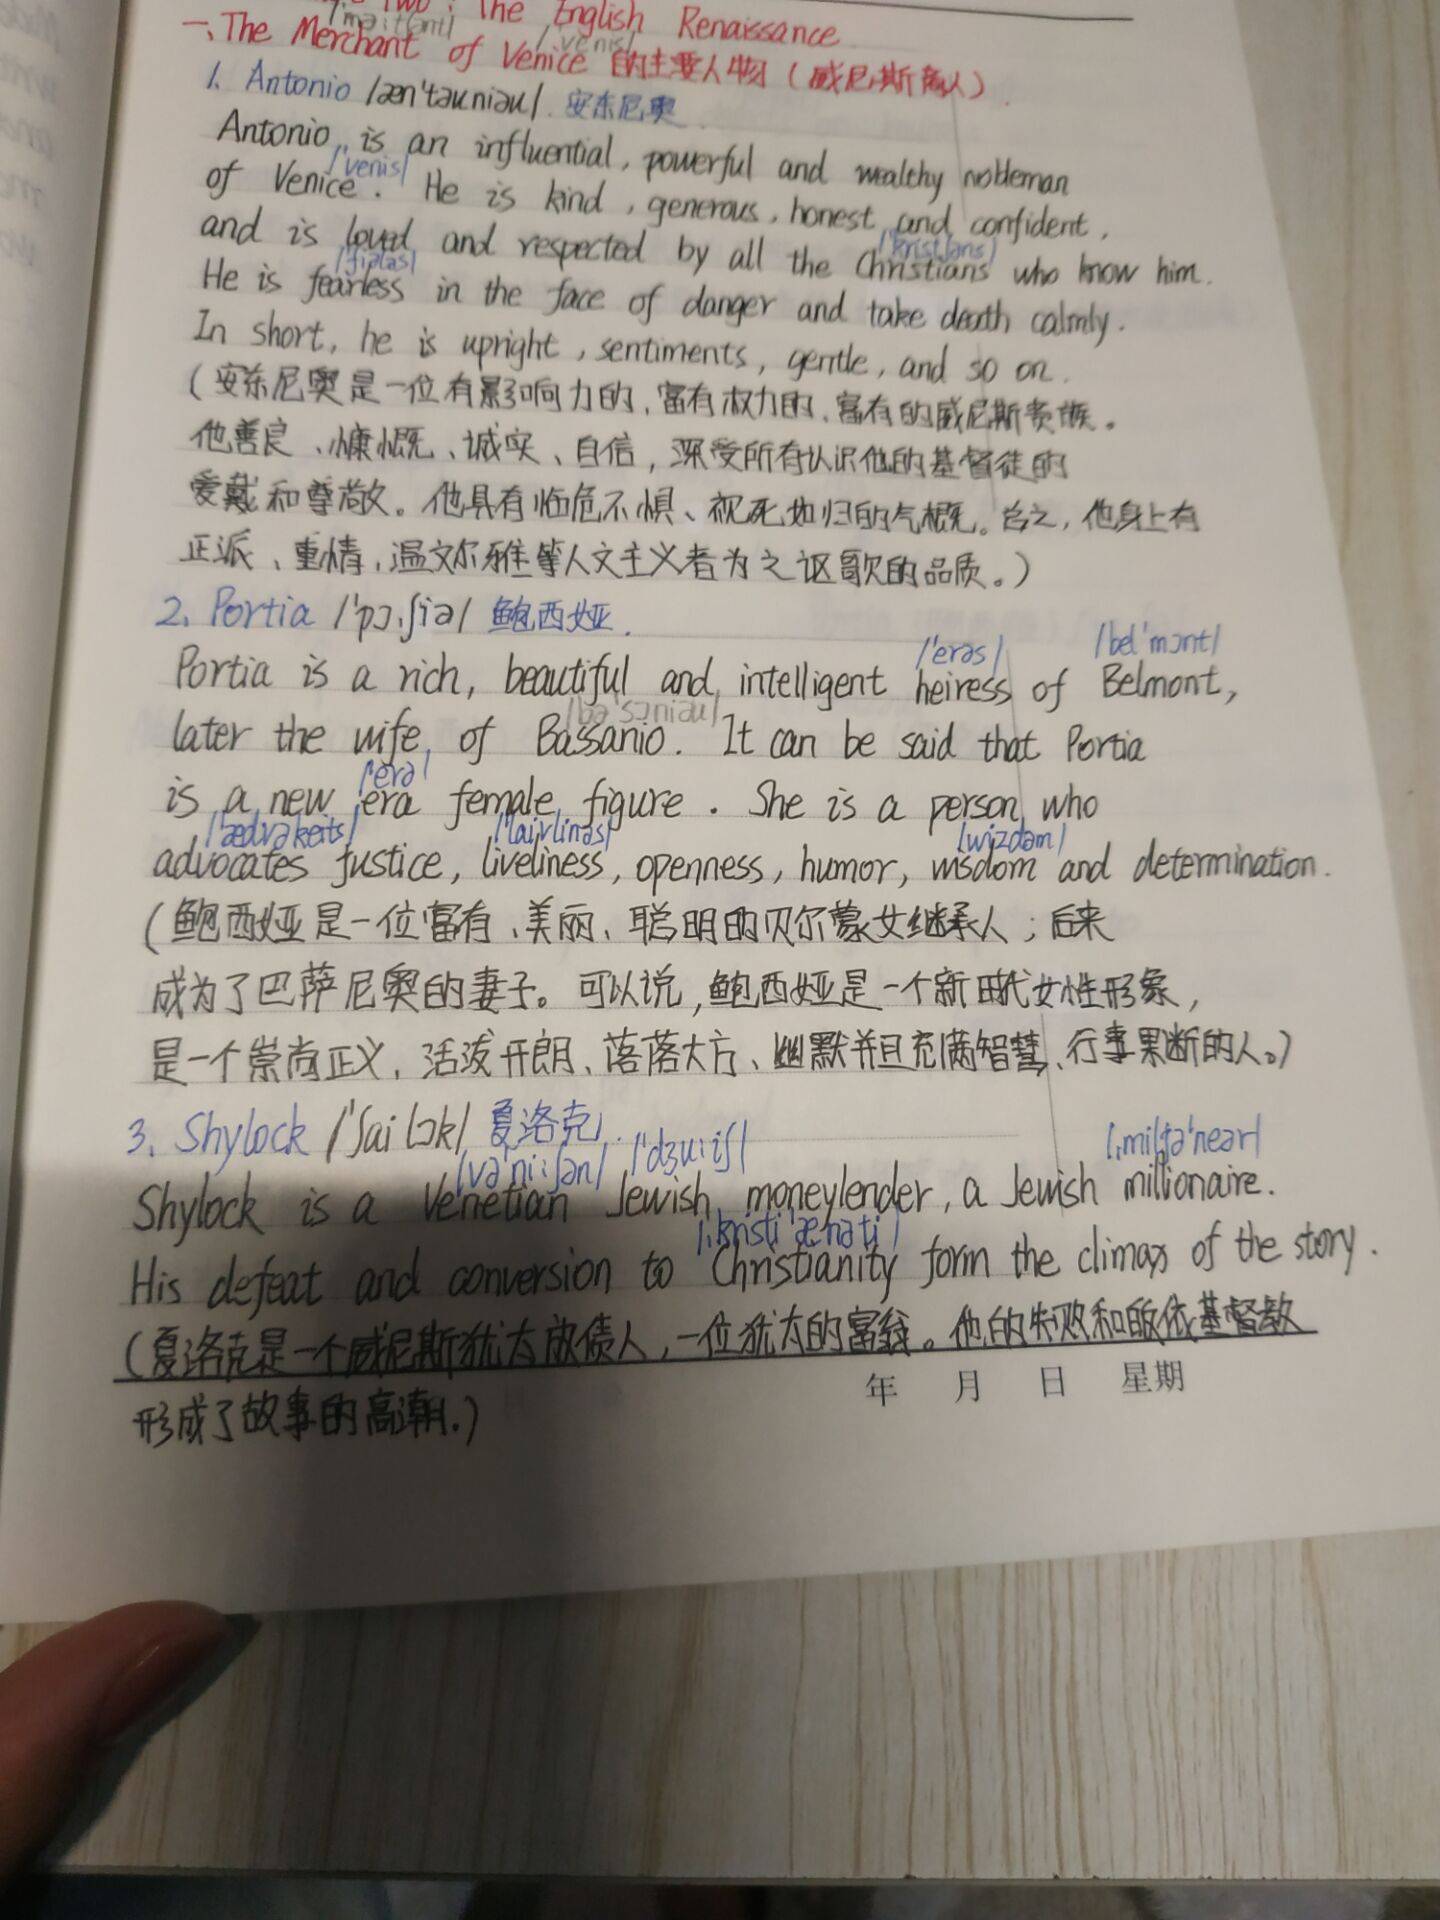 Two: The English Renaissance
一、The Merchant of Venice 的主要人物(威尼斯商人)
1. Antonio /æn'təuniəu/ 安东尼奥
Antonio is an influential, powerful and wealthy nobleman
/venis/
of Venice. He is kind, generous, honest and confident,
and is loved and respected by all the Christians who know him.
He is fearless in the face of danger and take death calmly.
In short, he is upright, sentiments, gentle, and so on.
(安东尼奥是一位有影响力的、富有权力的、富有的威尼斯贵族。
他善良、慷慨、诚实、自信,深受所有认识他的基督徒的
爱戴和尊敬。他具有临危不惧、视死如归的气概。总之,他身上有
正派、重情、温文尔雅等人文主义者为之讴歌的品质。)
2. Portia /'pɔ:ʃiə/ 鲍西娅
/'erəs/ /bel'mɔnt/
Portia is a rich, beautiful and intelligent heiress of Belmont,
/bə'sɔniəu/
later the wife of Bassanio. It can be said that Portia
/'erə/
is a new era female figure. She is a person who
/'ædvəkeits/ /'laivlinəs/ /wizdəm/
advocates justice, liveliness, openness, humor, wisdom and determination.
(鲍西娅是一位富有、美丽、聪明的贝尔蒙女继承人;后来
成为了巴萨尼奥的妻子。可以说,鲍西娅是一个新时代女性形象,
是一个崇尚正义,活泼开朗、落落大方、幽默并且充满智慧、行事果断的人。)
3. Shylock /'ʃailɔk/ 夏洛克
/və'ni:ʃən/ /'dʒu:iʃ/ /,miljə'neər/
Shylock is a Venetian Jewish moneylender, a Jewish millionaire.
/,kristi'ænəti/
His defeat and conversion to Christianity form the climax of the story.
(夏洛克是一个威尼斯犹太放债人,一位犹太的富翁。他的失败和皈依基督教
年 月 日 星期
形成了故事的高潮.)